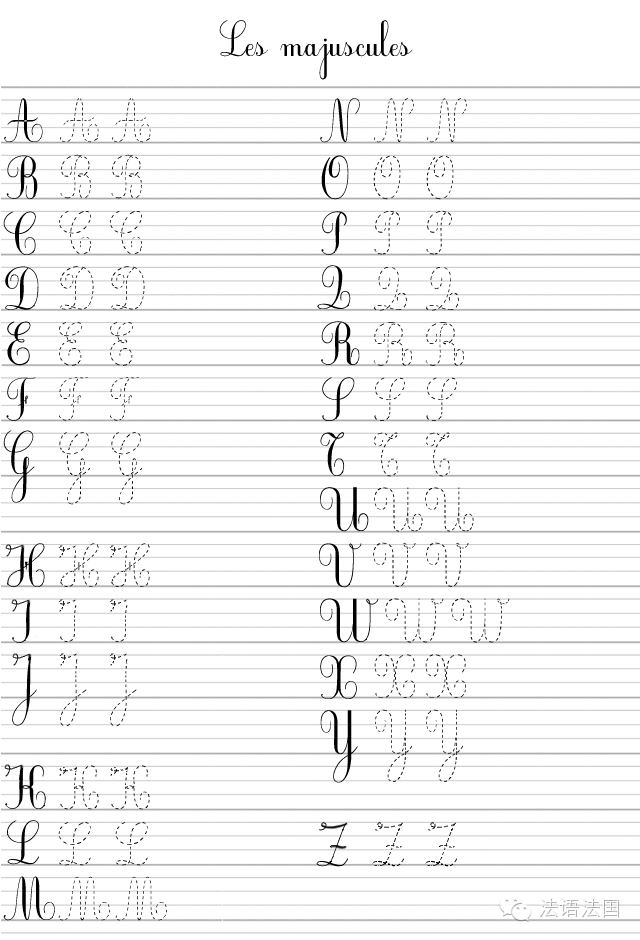 Les majuscules
A A A
B B B
C C C
D D D
E E E
F F F
G G G
H H H
I I I
J J J
K K K
L L L
M M M
N N N
O O O
P P P
Q Q Q
R R R
S S S
T T T
U U U
V V V
W W W
X X X
Y Y Y
Z Z Z
法语法国